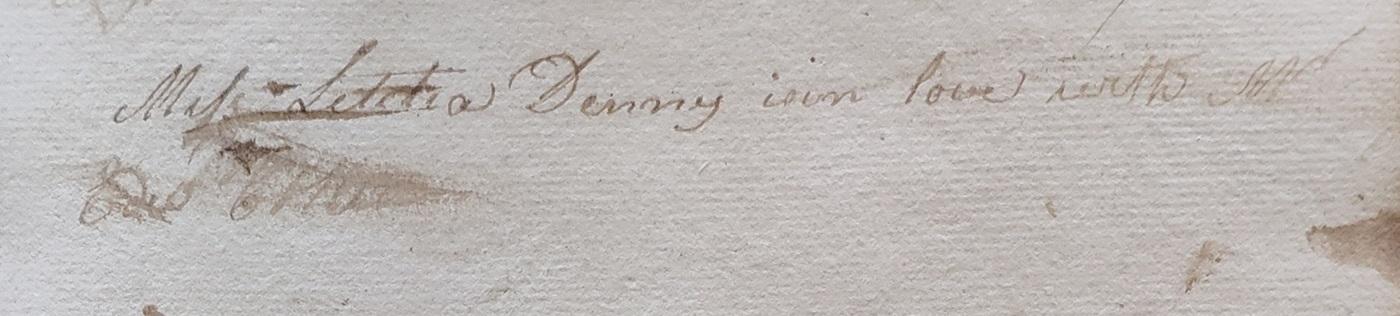 Miss Letitia Denny isin love with Mr